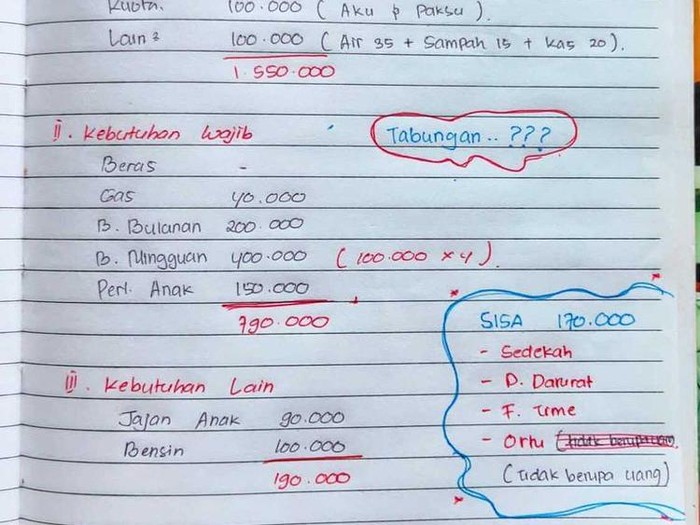 Kuota. 100.000 ( Aku & Paksu ).
Lain² 100.000 ( Air 35 + Sampah 15 + Kas 20 ).
1.550.000
II. Kebutuhan Wajib
Tabungan.. ???
Beras -
Gas 40.000
B. Bulanan 200.000
B. Mingguan 400.000 ( 100.000 x 4 ).
Perl. Anak 150.000
790.000
SISA 170.000
- Sedekah
- D. Darurat
- F. Time
- Ortu
(tidak berupa uang)
III. Kebutuhan Lain
Jajan Anak 90.000
Bensin 100.000
190.000